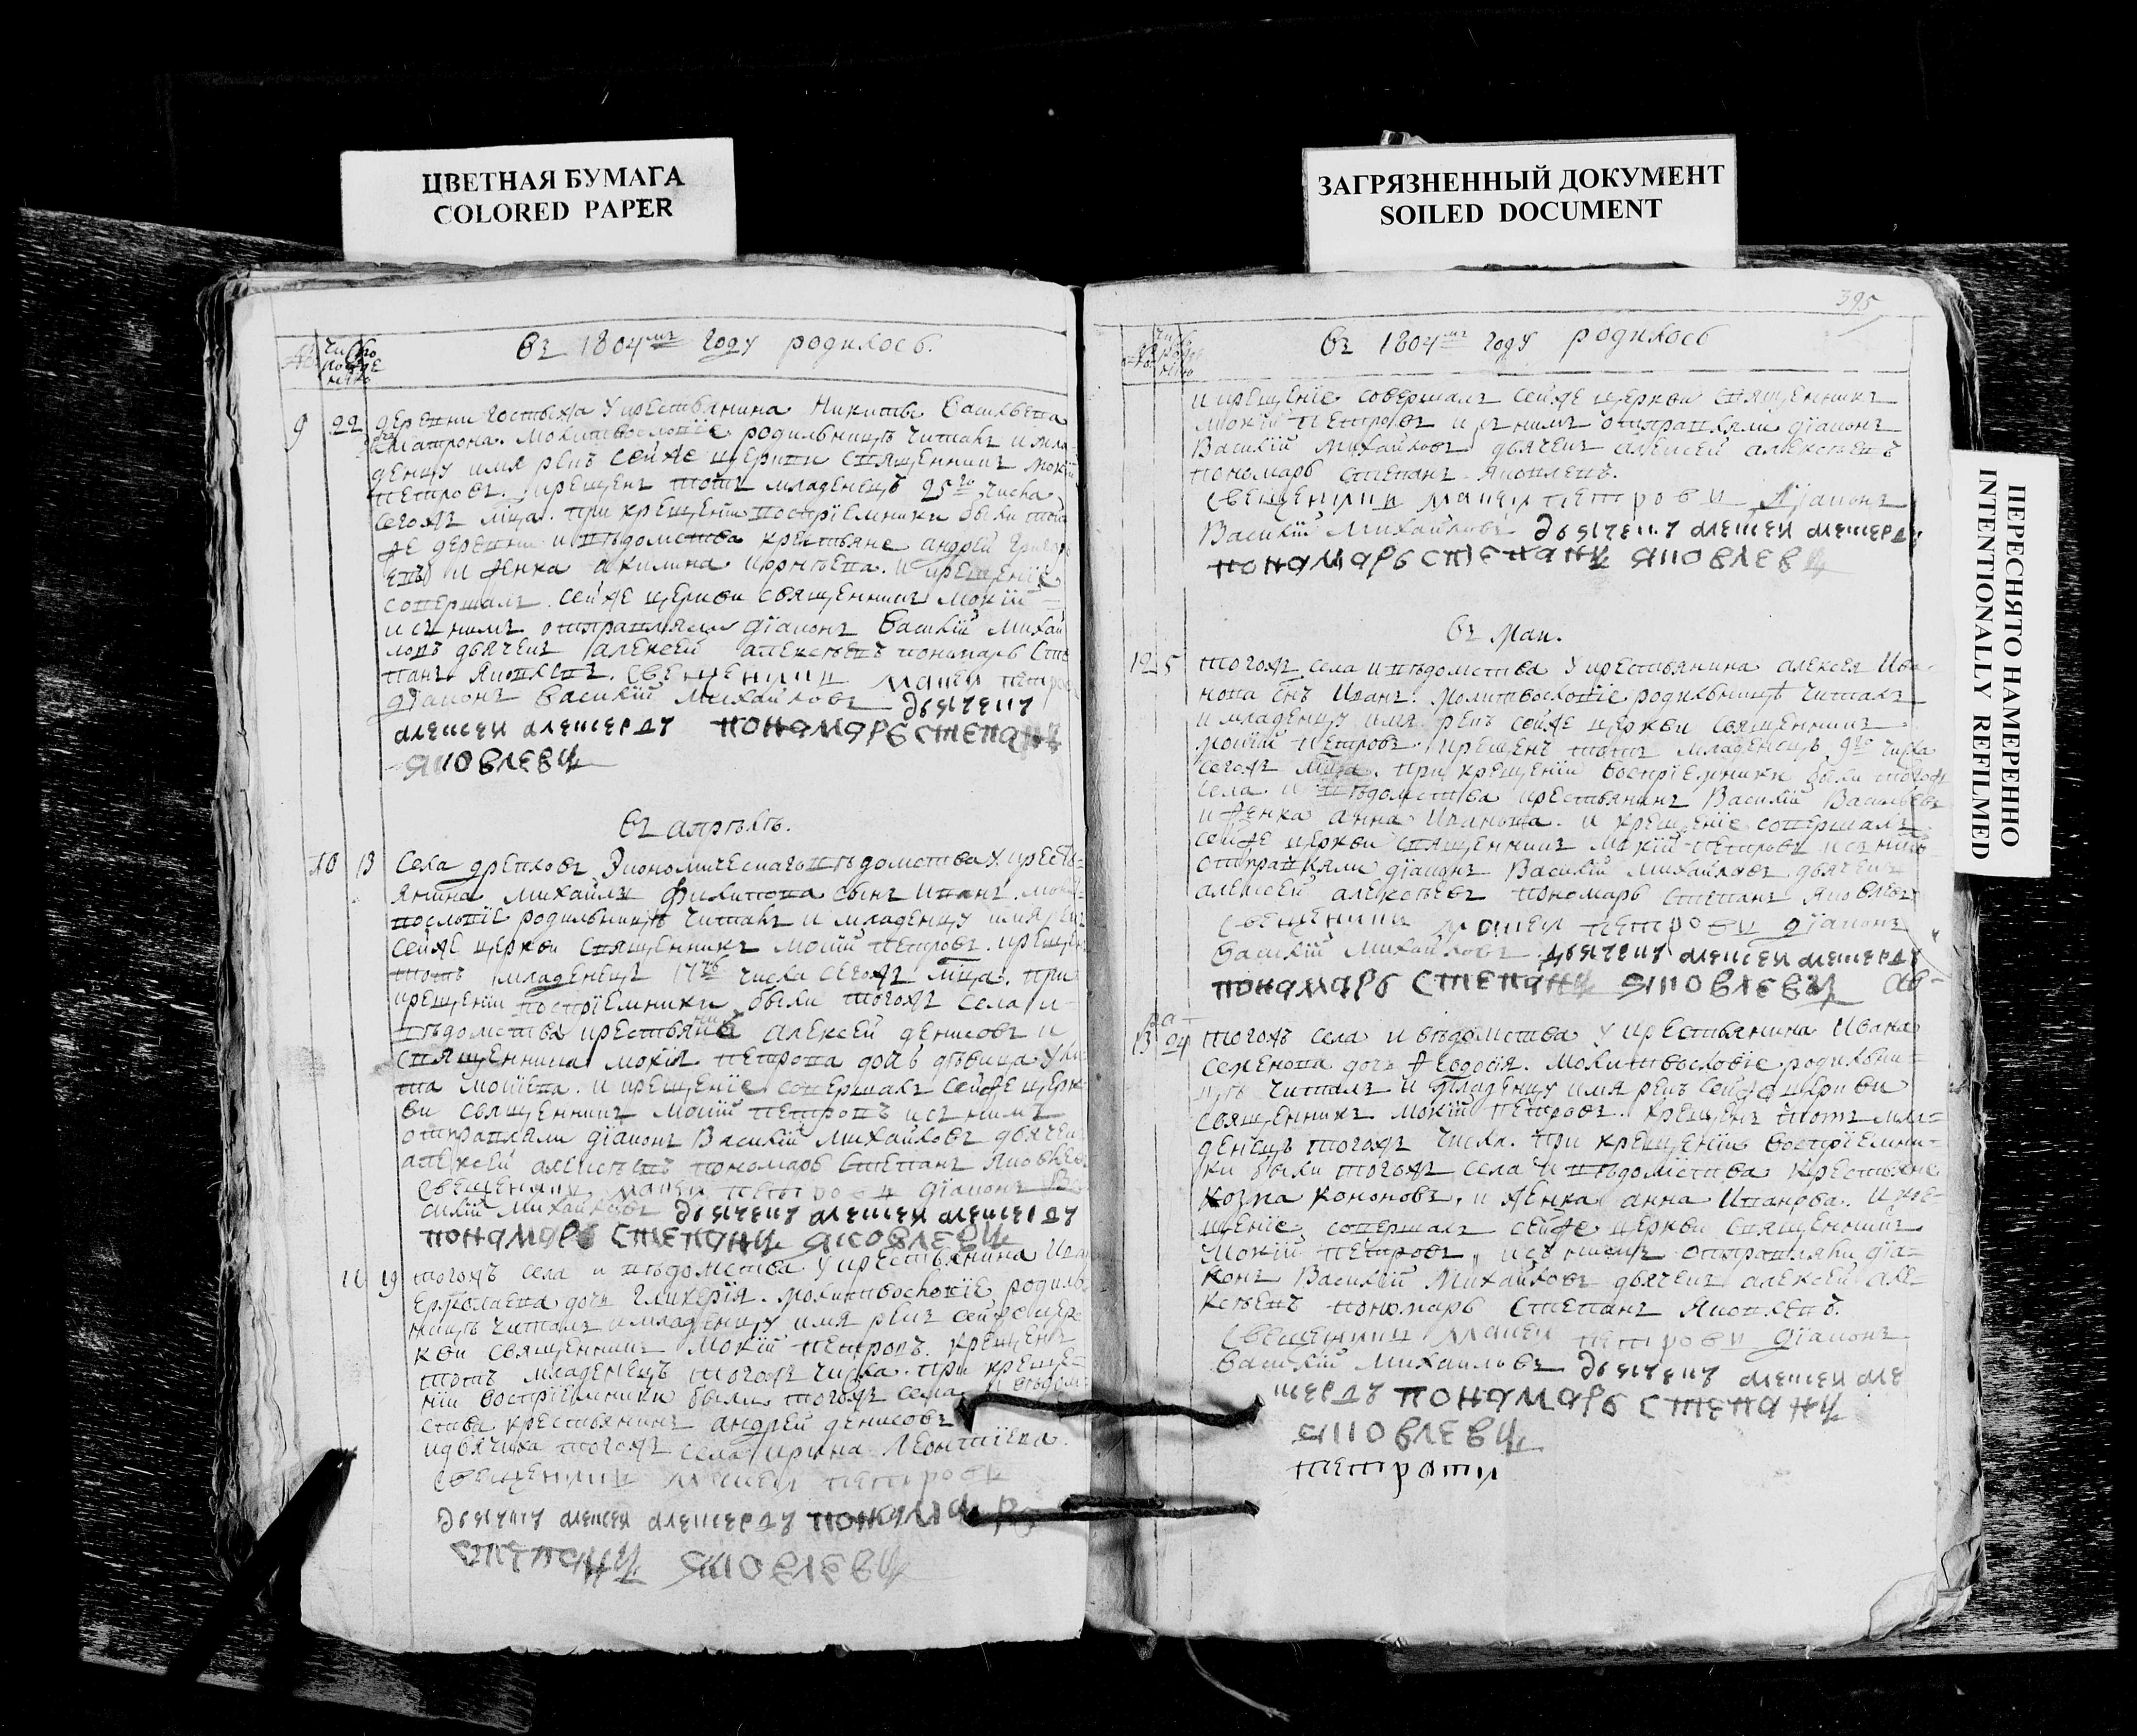 ЦВЕТНАЯ БУМАГА
COLORED PAPER
ЗАГРЯЗНЕННЫЙ ДОКУМЕНТ
SOILED DOCUMENT
ПЕРЕСНЯТО НАМЕРЕННО
INTENTIONALLY REFILMED
число
рожде
нія
въ 1804мъ году родилось.
9 22 деревни у крестьянина Никиты Васильева
дочь Матрона. молитвословіе родильницѣ читалъ и мла
денцу имя рекъ сейже церкви священникъ Мокій
Петровъ. крещенъ тотъ младенецъ 25го числа
сегожъ мца. при крещеніи воспріемники были той
же деревни и вѣдомства крестьяне андрей григорь
евъ и женка акилина Корнѣева. и крещеніе
совершалъ сейже церкви священникъ Мокій
и съ нимъ отправляли діаконъ Василій Михай
ловъ дьячекъ алексей алексѣевъ пономарь Сте
панъ Яковлевъ. свещенник Макеи петров
діаконъ Василій Михайловъ дьячекъ
алексеи алексеевъ понамарь степанъ
яковлевъ
въ апрѣлѣ.
10 13 Села Экономическаго вѣдомства у кресть
янина Михайлы Филипова сынъ Иванъ. молит
вословіе родильницѣ читалъ и младенцу имя рекъ
сейже церкви священникъ Мокій Петровъ. крещен
тотъ младенецъ 17го числа сегожъ мца. при
крещеніи воспріемники были тогожъ села и
вѣдомства крестьянинъ алексей денисовъ и
священника Мокія Петрова дочь дѣвица Ули
та Мокіева. и крещеніе совершалъ сейже церк
ви священникъ Мокій Петровъ и съ нимъ
отправляли діаконъ Василій Михайловъ дьячекъ
алексей алексѣевъ пономарь Степанъ Яковлев
свещенник макеи петрови діаконъ Ва
силій Михайловъ дьячекъ алексеи алексеевъ
понамарь степанъ яковлевъ
11 19 тогожъ села и вѣдомства у крестьянина Ива
Ермолаева дочь Гликерія. молитвословіе родиль
ницѣ читалъ и младенцу имя рекъ сейже цер
кви священникъ Мокій Петровъ. крещенъ
тотъ младенецъ тогожъ числа. при креще
ніи воспріемники были тогожъ села и вѣдом
ства крестьянинъ андрей денисовъ
и дьячиха тогожъ села ирина Леонтіева.
свещенник макеи петрови
дьячекъ алексеи алексеевъ понамарь
степанъ яковлевъ
395
въ 1804мъ году родилось
и крещеніе совершалъ сейже церкви священникъ
Мокій Петровъ и съ нимъ отправляли діаконъ
Василій Михайловъ дьячекъ алексей алексѣевъ
пономарь Степанъ Яковлевъ.
свещенник макеи петрови діаконъ
Василій Михайловъ дьячекъ алексеи алексеевъ
понамарь степанъ яковлевъ
въ Маи.
12 5 тогожъ села и вѣдомства у крестьянина алексея Ива
нова снъ Иванъ. молитвословіе родильницѣ читалъ
и младенцу имя рекъ сейже церкви священникъ
Мокій Петровъ. крещенъ тотъ младенецъ 9го числа
сегожъ мца. при крещеніи воспріемники были тогожъ
села и вѣдомства крестьянинъ Василій Васильевъ
и женка анна Иванова. и крещеніе совершалъ
сейже церкви священникъ Мокій Петровъ и съ нимъ
отправляли діаконъ Василій Михайловъ дьячекъ
алексей алексѣевъ пономарь Степанъ Яковлевъ
свещенник макеи петрови діаконъ
Василій Михайловъ дьячекъ алексеи алексеевъ
понамарь степанъ яковлевъ
13 24 тогожъ села и вѣдомства у крестьянина Ивана
Семенова дочь Ѳеодосія. молитвословіе родильни
цѣ читалъ и младенцу имя рекъ сейже церкви
священникъ Мокій Петровъ. крещенъ тотъ мла
денецъ тогожъ числа. при крещеніи воспріемни
ки были тогожъ села и вѣдомства крестьяне
козма кононовъ, и женка анна Иванова. и кре
щеніе совершалъ сейже церкви священникъ
Мокій Петровъ, и съ нимъ отправляли діа
конъ Василій Михайловъ дьячекъ алексей але
ксѣевъ пономарь Степанъ Яковлевъ.
свещенник макеи петрови діаконъ
Василій Михаиловъ дьячекъ алексеи але
ксеевъ понамарь степанъ
яковлевъ